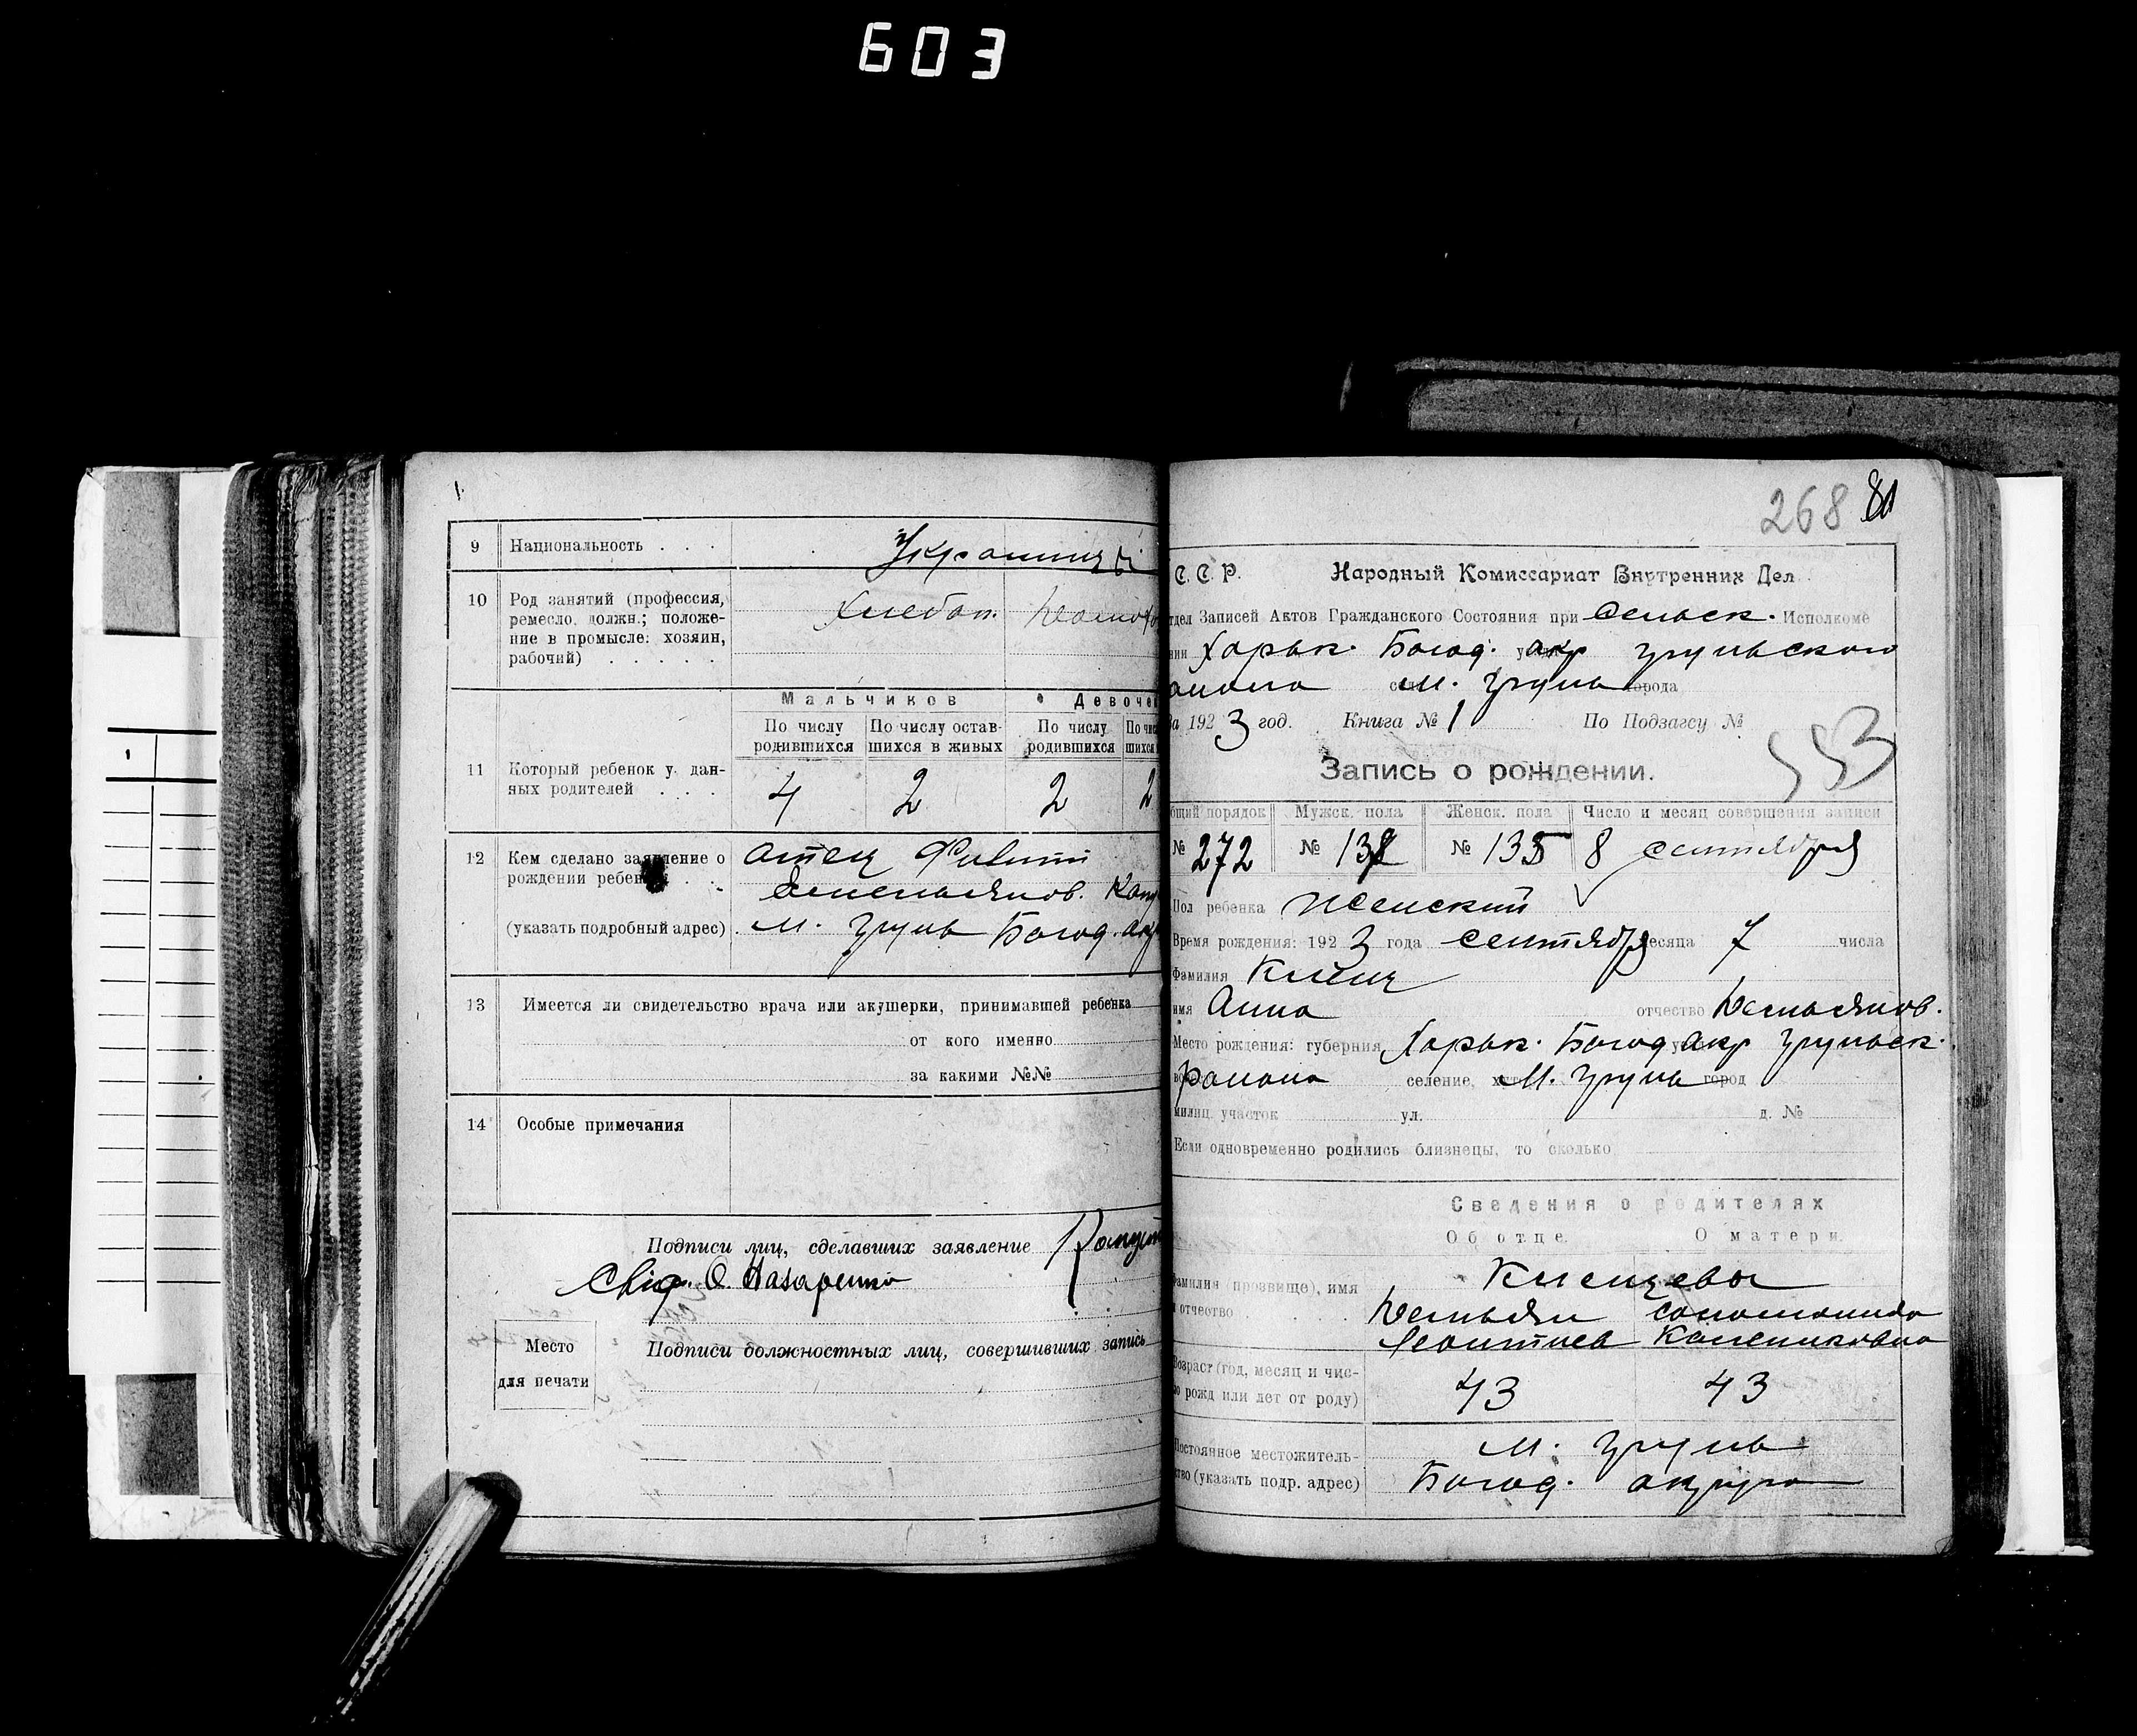 603
9 Национальность . . . Украинцы
10 Род занятий (профессия, ремесло, должн.; положение в промысле: хозяин, рабочий) . . . . .
Хлебоп.
Мальчиков Девоче
По числу родившихся По числу оставшихся в живых По числу родившихся
11 Который ребенок у данных родителей . . .
4 2 2 2
12 Кем сделано заявление о рождении ребенка . .
(указать подробный адрес)
отец Филипп
Емельянов. Кап
м. Грунь Богод. ок
13 Имеется ли свидетельство врача или акушерки, принимавшей ребенка
от кого именно
за какими №№
14 Особые примечания
Подписи лиц, сделавших заявление Капуст
Свід. О. Назаренко
Место для печати
Подписи должностных лиц, совершивших запись
268 81
С. С. Р. Народный Комиссариат Внутренних Дел
тдел Записей Актов Гражданского Состояния при Сельск. Исполкоме
нии Харьк. Богод. окр Груньского
м. Грунь города
За 1923 год. Книга № 1 По Подзагсу №
553
Запись о рождении.
бщий порядок Мужск. пола Женск. пола Число и месяц совершения записи
№ 272 № 13 № 135 8 сентября
Пол ребенка Женский
Время рождения: 1923 года сентября месяца 7 числа
Фамилия Клец
имя Анна отчество Демьянов.
Место рождения: губерния Харьк. Богод окр Груньск.
района селение, М. Грунь город
милиц. участок ул. д. №
Если одновременно родились близнецы, то сколько
Сведения о родителях
Об отце. О матери.
Фамилия (прозвище), имя и отчество . . . .
Демьян Соломонида
Леонтиев Калениковна
Возраст (год, месяц и число рожд или лет от роду)
43 43
Постоянное местожительство (указать подр. адрес)
М. Грунь
Богод. округа